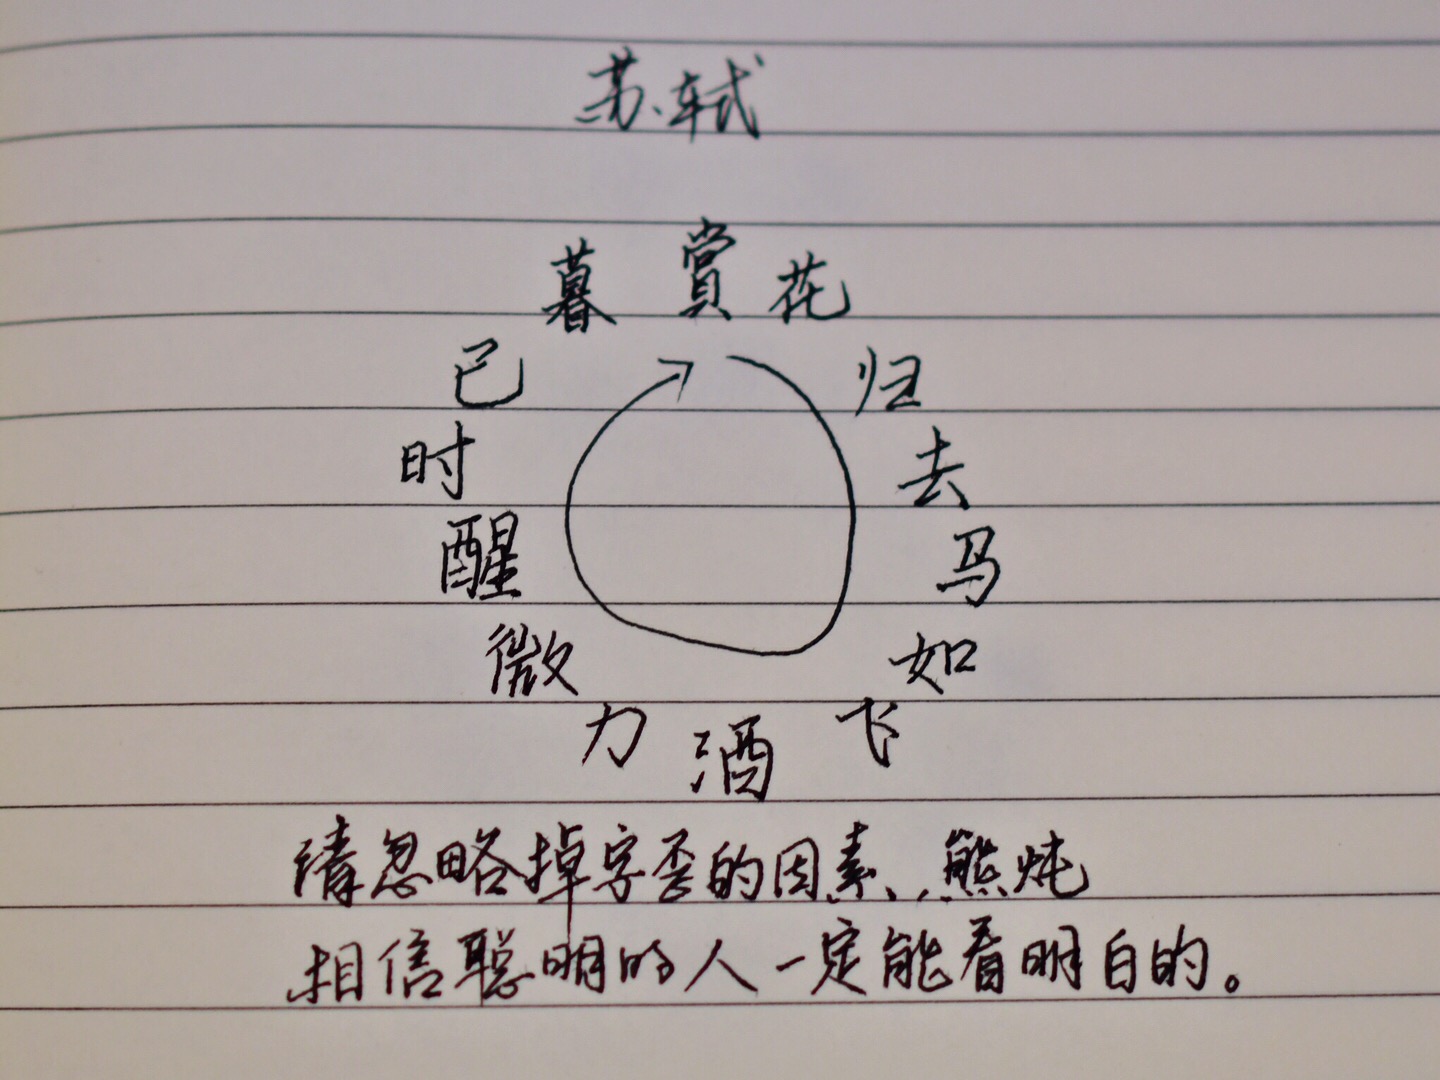 苏轼
賞花归去马如飞酒力微醒时已暮
请忽略掉字歪的因素、熊炖
相信聪明的人一定能看明白的。